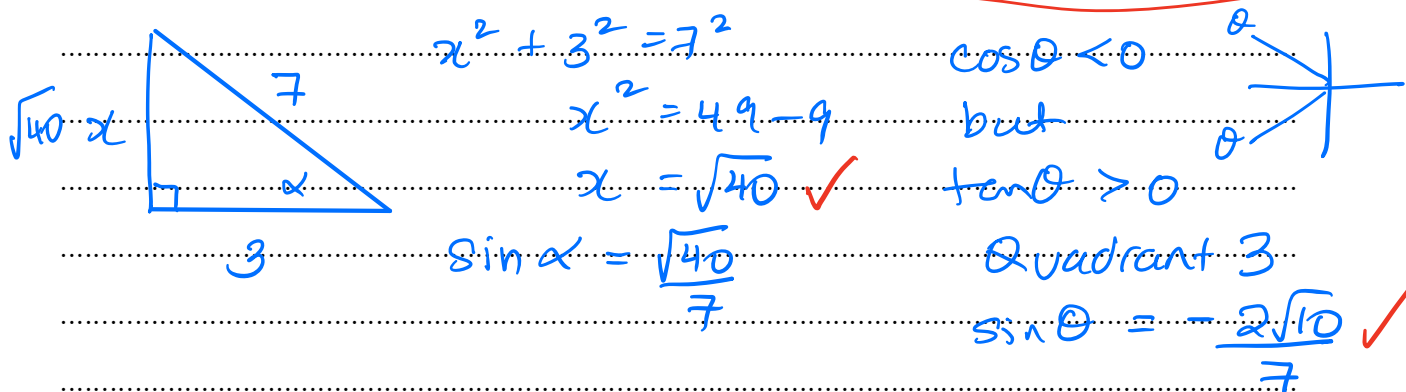 √40 x
7
α
3
x² + 3² = 7²
x² = 49 - 9
x = √40 ✓
sin α = √40/7
cosθ < 0
but
tanθ > 0
Quadrant 3
sinθ = - 2√10/7 ✓
θ
θ